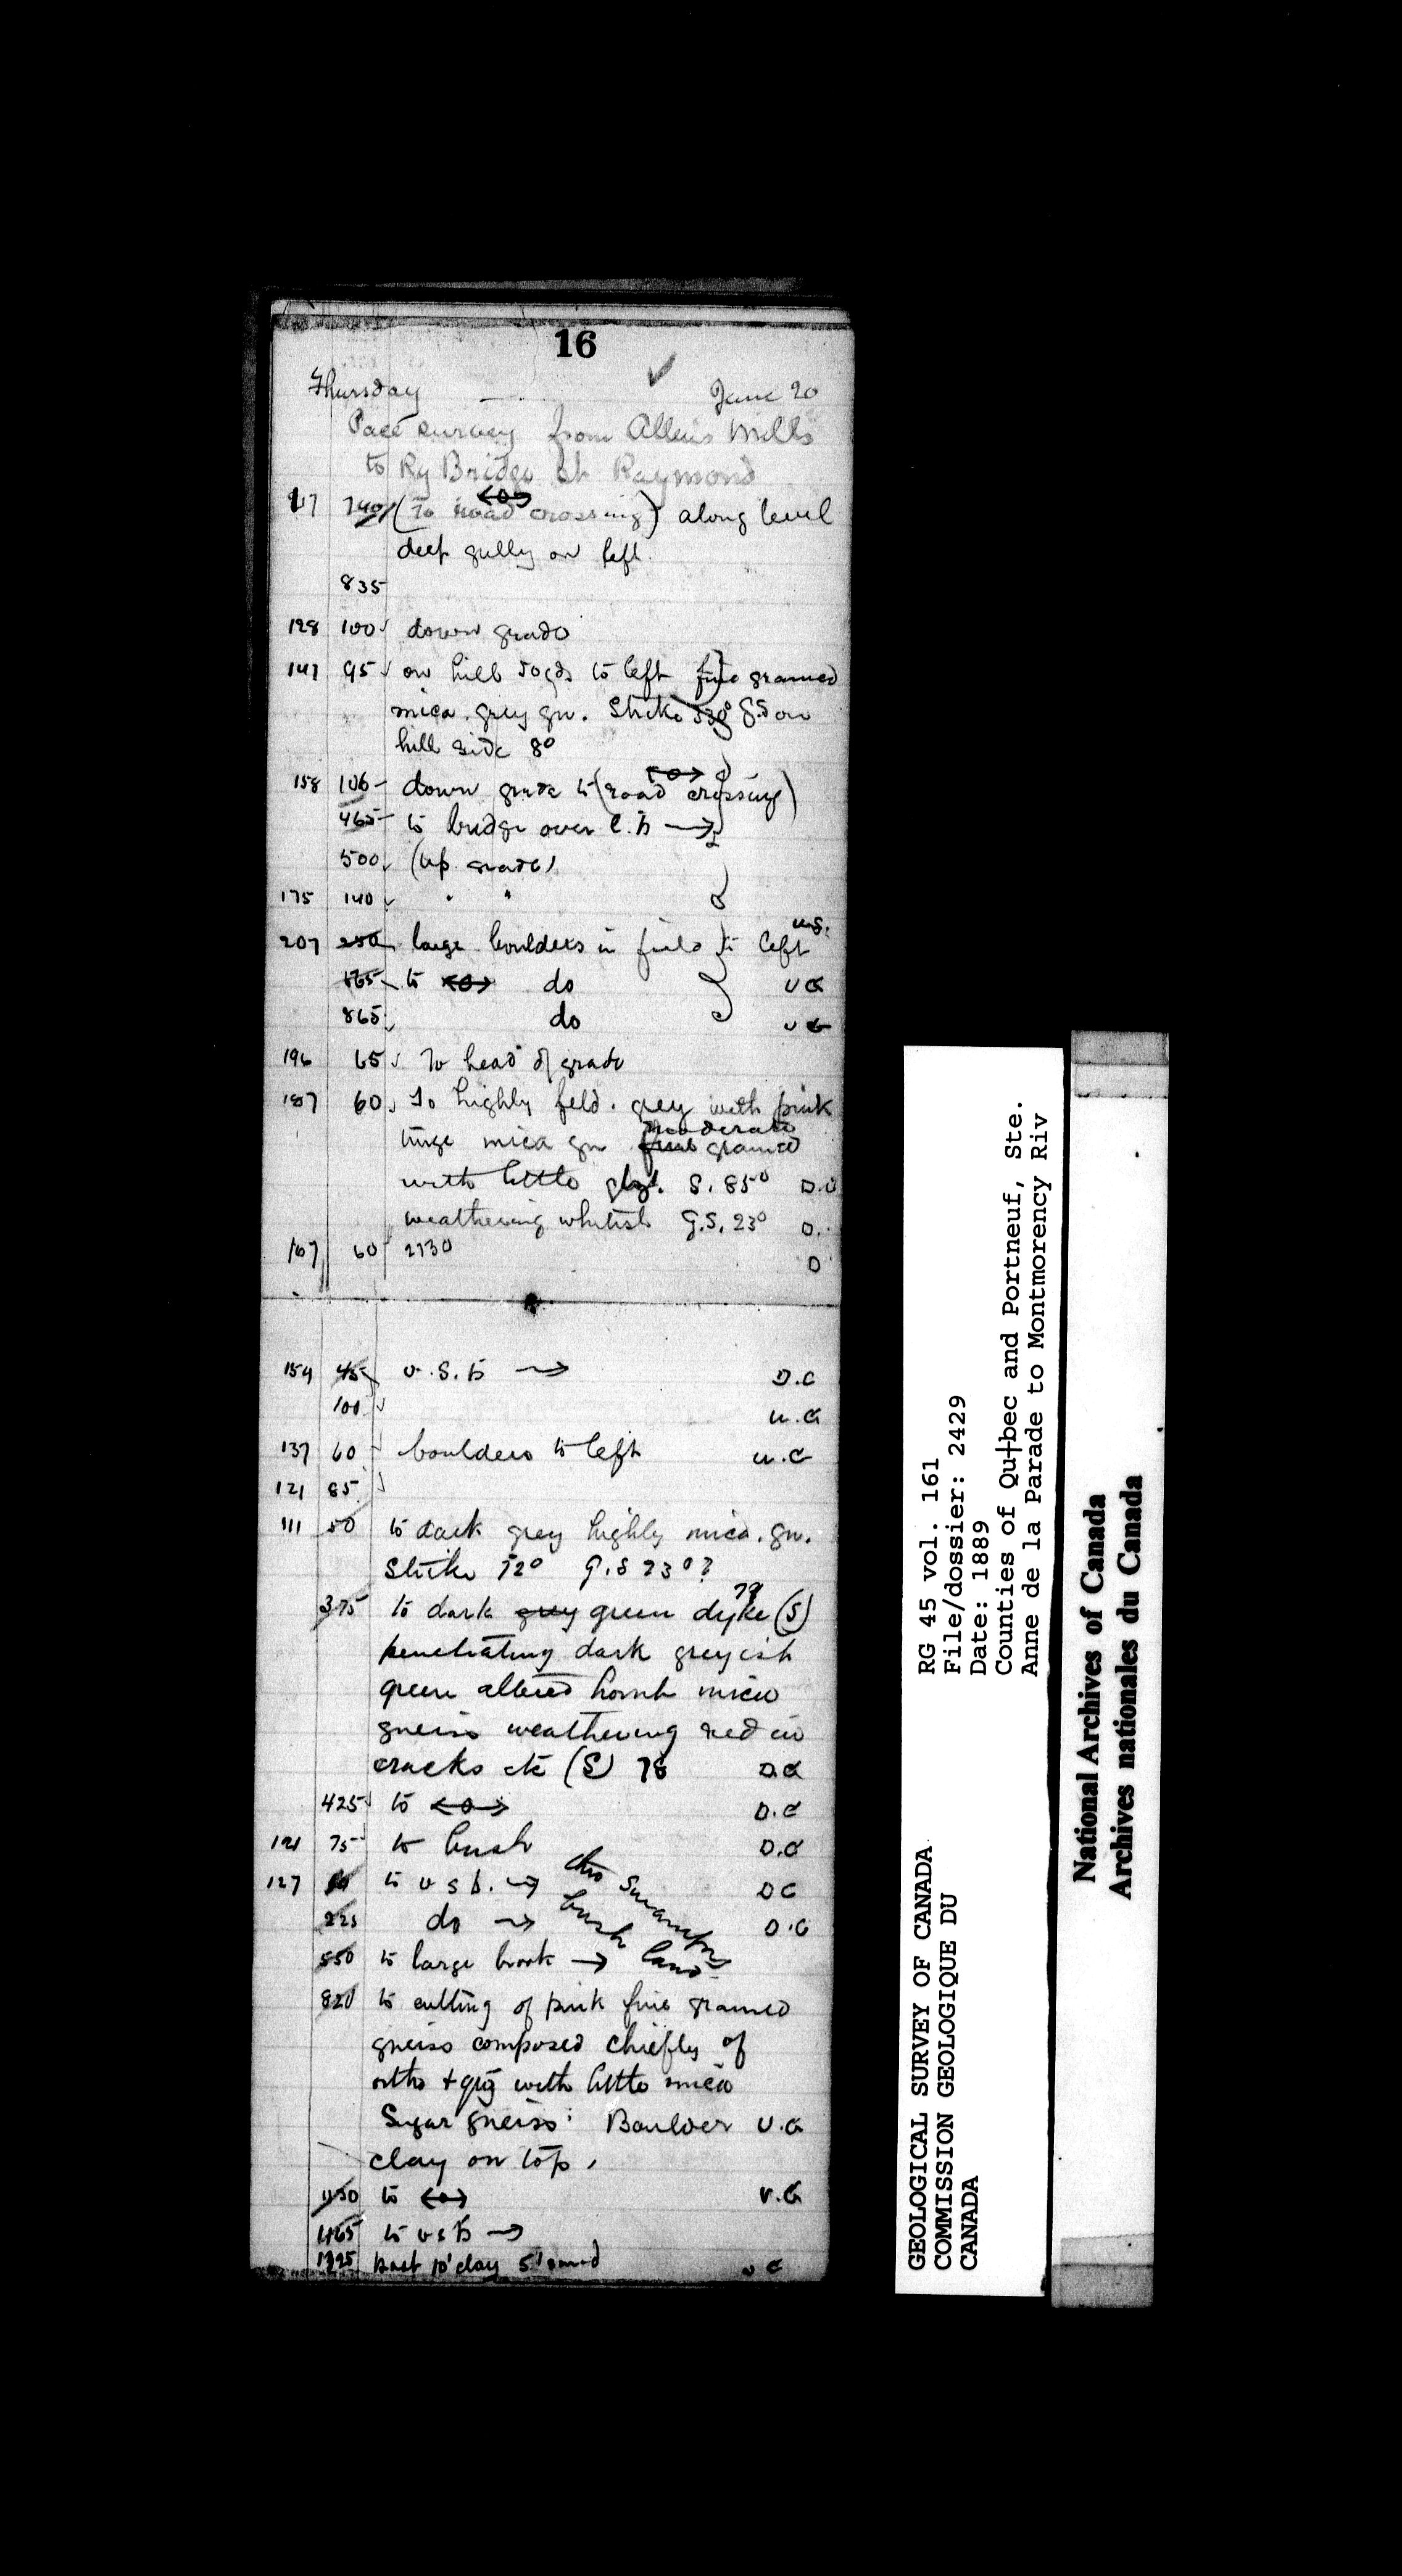 16
Thursday June 20
Pace survey from Allens Mills
to Ry Bridge at Raymond
740 (To road crossing) along level
deep gully on left.
835
128 100 down grade
147 95 on hill 50 yds. to left fine grained
mica. grey gn. Strike on
hill side 8°
158 106 down grade to (road crossing)
465 to bridge over
500 (up grade)
175 140 " "
207 250 large boulders in field to left u.g.
165 to do U G
865 do U G
196 65 To head of grade
187 60 To highly feld. grey with pink
tinge mica gn fine moderate grained
with little S. 85° D.
weathering whitish G.S. 23° D.
167 60 2130 D
154 45 v.S.b → D.G
100 u.G
137 60 boulders to left u.G
121 85
111 50 to dark grey highly mica. gn.
Strike 72° G.S 23°?
375 to dark grey green dyke 79 (S)
penetrating dark greyish
green altered hornb mica
gneiss weathering red in
cracks etc (S) 78 D.G
425 to D.G
121 75 to bush D.G
127 to v s b. → thro swampy D G
225 do → bush land D.G
550 to large brook →
820 to cutting of pink fine grained
gneiss composed chiefly of
ortho + qtz with little mica
Sugar gneiss: Boulder U.G
clay on top.
1150 to U.G
1165 to v s b →
1225 10' clay 5' sand U G
GEOLOGICAL SURVEY OF CANADA
COMMISSION GEOLOGIQUE DU
CANADA
RG 45 vol. 161
File/dossier: 2429
Date: 1889
Counties of Qu†bec and Portneuf, Ste.
Anne de la Parade to Montmorency Riv
National Archives of Canada
Archives nationales du Canada